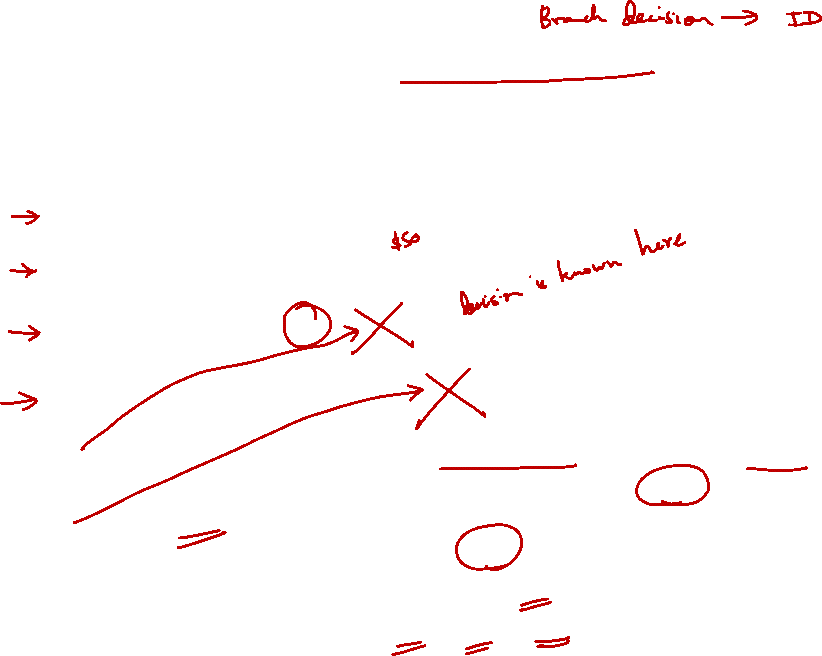 Branch decision → ID
$50
Decision is known here